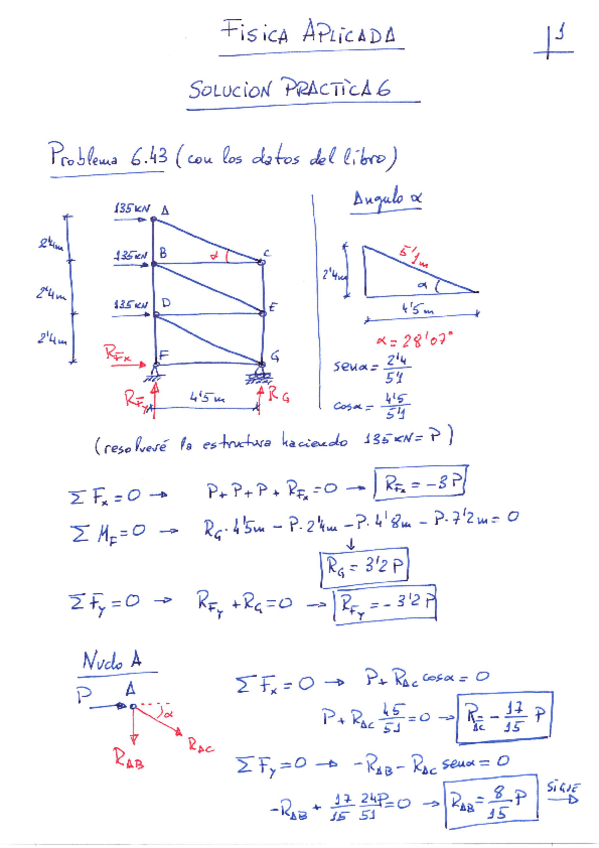 FISICA APLICADA
1
SOLUCION PRACTICA 6
Problema 6.43 (con los datos del libro)
135 KN A
135 KN B
135 KN D
α C
E
F G
2'4m
2'4m
2'4m
R_Fx
R_Fy
4'5m
R_G
Angulo α
2'4m
5'1m
α
4'5m
α = 28'07°
sen α = 2'4/5'1
cos α = 4'5/5'1
(resolveré la estructura haciendo 135 KN = P)
Σ F_x = 0 → P + P + P + R_Fx = 0 → R_Fx = -3P
Σ M_F = 0 → R_G · 4'5m - P · 2'4m - P · 4'8m - P · 7'2m = 0
↓
R_G = 3'2 P
Σ F_y = 0 → R_Fy + R_G = 0 → R_Fy = -3'2 P
Nudo A
P A
α
R_AB
R_AC
Σ F_x = 0 → P + R_AC cos α = 0
P + R_AC 45/51 = 0 → R_AC = - 17/15 P
Σ F_y = 0 → -R_AB - R_AC sen α = 0
-R_AB + 17/15 24P/51 = 0 → R_AB = 8/15 P
SIGUE →